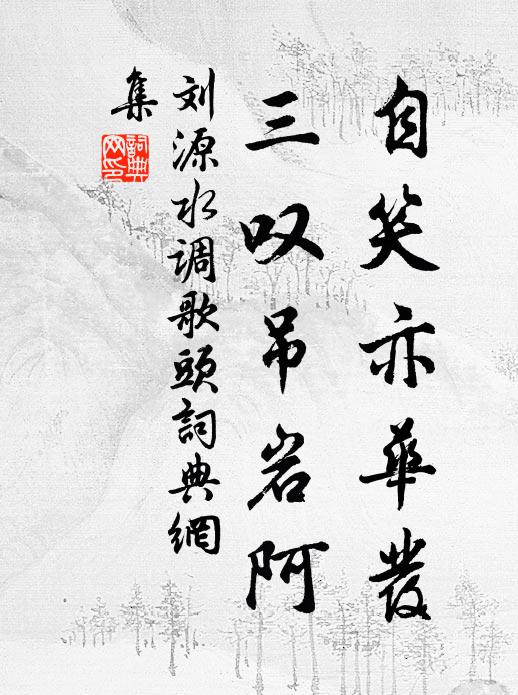 自笑亦華發
三叹吊岩阿
刘源水调歌頭詞典網
集
詞典
网印